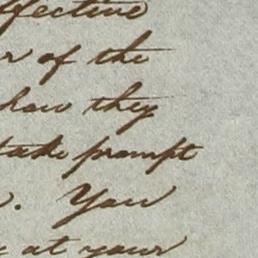 ffective
r of the
how they
take prompt
. You
at your